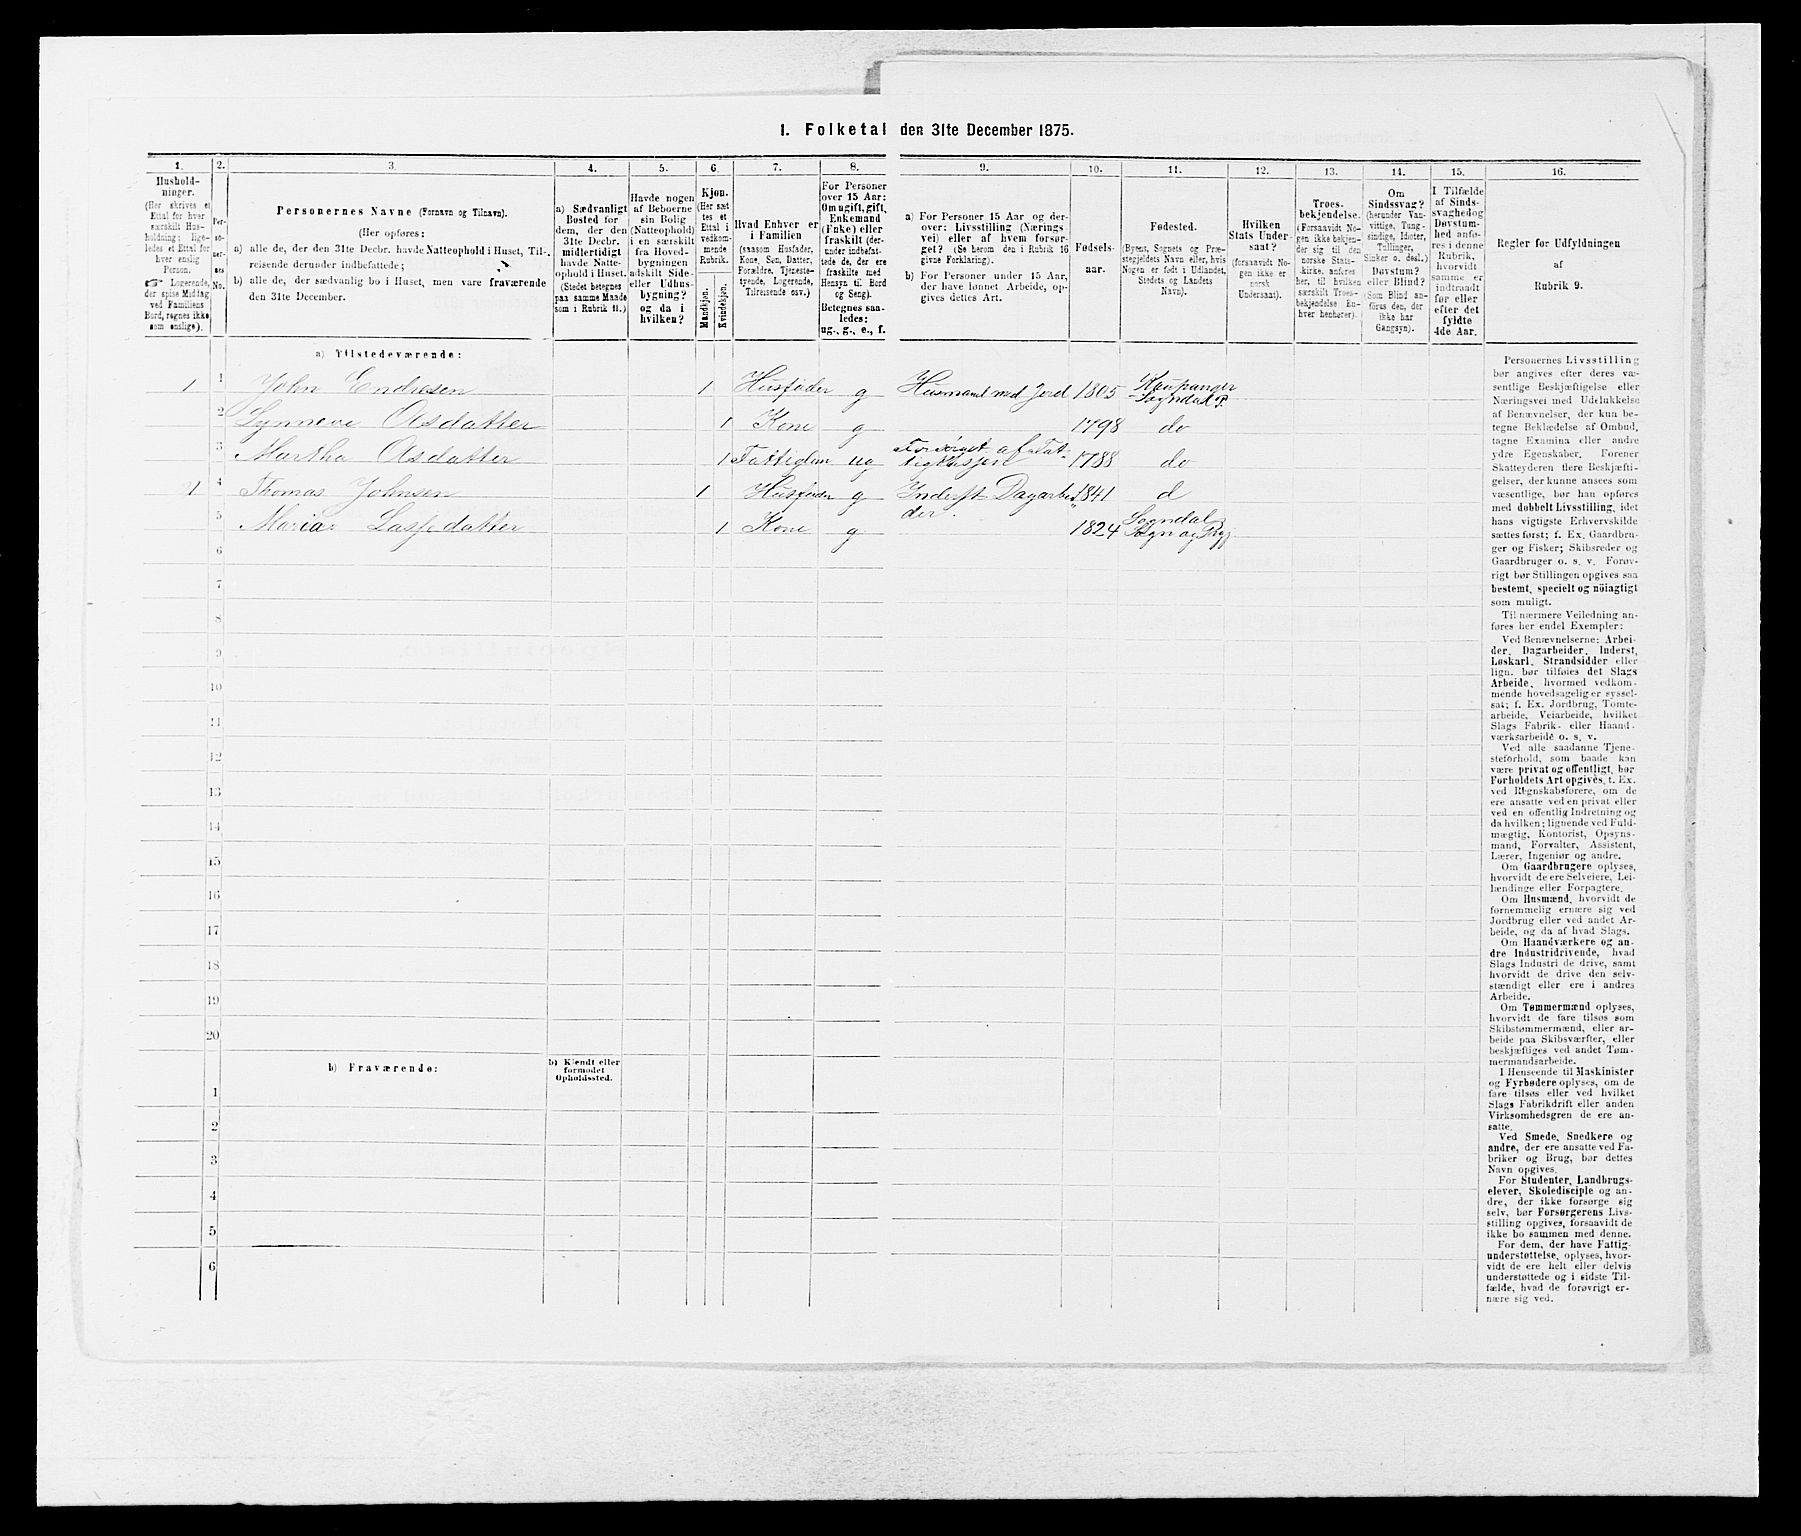 I. Folketal den 31te December 1875.
1. 2. 3. 4. 5. 6. 7. 8. 9. 10. 11. 12. 13. 14. 15. 16.
Hushold-
ninger.
(Her skrives et
Ettal for hver
særskilt Hus-
holdning; lige-
ledes et Ettal for
hver enslig
Person.
☞ Logerende,
der spise Middag
ved Familiens
Bord, regnes ikke
som enslige).
Per-
so-
ner-
nes
No.
Personernes Navne (Fornavn og Tilnavn).
(Her opføres:
a) alle de, der den 31te Decbr. havde Natteophold i Huset, Til-
reisende derunder indbefattede;
b) alle de, der sædvanlig bo i Huset, men vare fraværende
den 31te December.
a) Sædvanligt
Bosted for
dem, der den
31te Decbr.
midlertidigt
havde Natte-
ophold i Huset.
(Stedet betegnes
paa samme Maade
som i Rubrik 11.)
Havde nogen
af Beboerne
sin Bolig
(Natteophold)
i en særskilt
fra Hoved-
bygningen
adskilt Side-
eller Udhus-
bygning?
og da i
hvilken?
Kjøn.
(Her sæt
tes et
Ettal i
vedkom-
mende
Rubrik.
Mandkjøn.
Kvindekjøn.
Hvad Enhver er
i Familien
(saasom Husfader,
Kone, Søn, Datter,
Forældre, Tjeneste-
tyende, Logerende,
Tilreisende osv.)
For Personer
over 15 Aar:
Om ugift, gift,
Enkemand
(Enke) eller
fraskilt (der-
under indbefat-
tede de, der ere
fraskilte med
Hensyn til Bord
og Seng).
Betegnes saa-
ledes:
ug., g., e., f.
a) For Personer 15 Aar og der-
over: Livsstilling (Nærings
vei) eller af hvem forsør-
get? (Se herom den i Rubrik 16
givne Forklaring).
b) For Personer under 15 Aar,
der have lønnet Arbeide, op-
gives dettes Art.
Fødsels-
aar.
Fødested.
(Byens, Sognets og Præ-
stegjeldets Navn eller, hvis
Nogen er født i Udlandet,
Stedets og Landets
Navn).
Hvilken
Stats Under
saat?
(forsaavidt No-
gen ikke er
norsk
Undersaat).
Troes-
bekjendelse.
(Forsaavidt No-
gen ikke bekjen-
der sig til den
norske Stats-
kirke, anføres
her, til hvilken
særskilt Troes-
bekjendelse En-
hver henhører).
Om
Sindssvag?
(herunder Van-
vittige, Tung-
sindige, Idioter,
Tullinger,
Sinker o. desl.)
Døvstum?
eller Blind?
(Som Blind an-
føres den, der
ikke har
Gangsyn).
I Tilfælde
af Sinds-
svaghed og
Døvstum-
hed anfø-
res i denne
Rubrik,
hvorvidt
samme er
indtraadt
før eller
efter det
fyldte
4de Aar.
Regler for Udfyldningen
af
Rubrik 9.
a) Tilstedeværende:
1 1 John Endresen 1 Husfader g Husmand med Jord 1805 Kaupanger
Sogndal P.
2 Synneve Asdatter 1 Kone g 1798 do
3 Martha Asdatter 1 Fattiglem ug Forsørget af Fat-
tigkassen 1788 do
1 4 Thomas Johnsen 1 Husfader g Inderst Dagarbei
der 1841 d
5 Maria Lassedatter 1 Kone g 1824 Sogndal
Sogn og
6
7
8
9
10
11
12
13
14
15
16
17
18
19
20
b) Fraværende:
b) Kjendt eller
formodet
Opholdssted.
1
2
3
4
5
6
Personernes Livsstilling
bør angives efter deres væ-
sentlige Beskjæftigelse eller
Næringsvei med Udelukkelse
af Benævnelser, der kun be-
tegne Beklædelse af Ombud,
tagne Examina eller andre
ydre Egenskaber. Forener
Skatteyderen flere Beskjæfti-
gelser, der kunne ansees som
væsentlige, bør han opføres
med dobbelt Livsstilling, idet
hans vigtigste Erhvervskilde
sættes først; f. Ex. Gaardbru-
ger og Fisker; Skibsreder og
Gaardbruger o. s. v. Forøv-
rigt bør Stillingen opgives saa
bestemt, specielt og nöiagtigt
som muligt.
Til nærmere Veiledning an-
føres her endel Exempler:
Ved Benævnelserne: Arbei-
der, Dagarbeider, Inderst,
Løskarl, Strandsidder eller
lign. bør tilføies det Slags
Arbeide, hvormed vedkom-
mende hovedsagelig er syssel-
sat; f. Ex. Jordbrug, Tomte-
arbeide, Veiarbeide, hvilket
Slags Fabrik- eller Haand-
værksarbeide o. s. v.
Ved alle saadanne Tjene-
steforhold, som baade kan
være privat og offentligt, bør
Forholdets Art opgives, t. Ex.
ved Regnskabsførere, om de
ere ansatte ved en privat eller
ved en offentlig Indretning og
da hvilken; lignende ved Fuld-
mægtig, Kontorist, Opsyns-
mand, Forvalter, Assistent,
Lærer, Ingeniør og andre.
Om Gaardbrugere oplyses,
hvorvidt de ere Selveiere, Lei-
lændinge eller Forpagtere.
Om Husmænd, hvorvidt de
fornemmelig ernære sig ved
Jordbrug eller ved andet Ar-
beide, og da af hvad Slags.
Om Haandværkere og an-
dre Industridrivende, hvad
Slags Industri de drive, samt
hvorvidt de drive den selv-
stændigt eller ere i andres
Arbeide.
Om Tømmermænd oplyses,
hvorvidt de fare tilsøs som
Skibstømmermænd, eller ar-
beide paa Skibsværfter, eller
beskjæftiges ved andet Tøm-
mermandsarbeide.
I Henseende til Maskinister
og Fyrbødere oplyses, om de
fare tilsøs eller ved hvilket
Slags Fabrikdrift eller anden
Virksomhedsgren de ere an-
satte.
Ved Smede, Snedkere og
andre, der ere ansatte ved Fa-
briker og Brug, bør dettes
Navn opgives.
For Studenter, Landbrugs-
elever, Skoledisciple og an-
dre, der ikke forsørge sig
selv, bør Forsørgerens Livs-
stilling opgives, forsaavidt de
ikke bo sammen med denne.
For dem, der have Fattig-
understøttelse, oplyses, hvor-
vidt de ere helt eller delvis
understøttede og i sidste Til-
fælde, hvad de forøvrigt er-
nære sig ved.